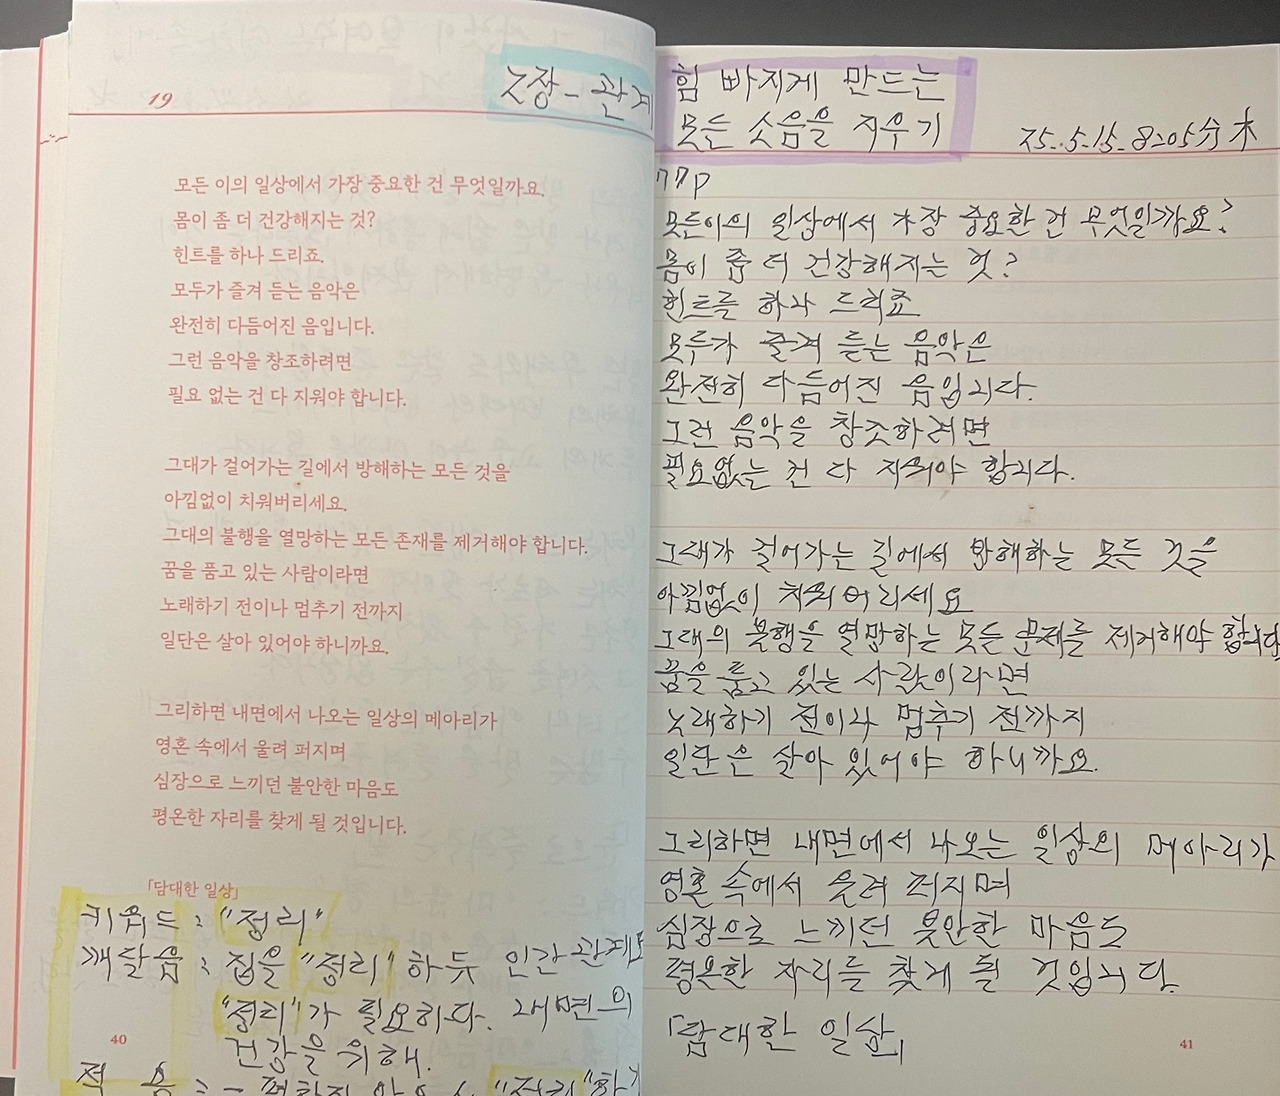 19
2장 - 관계
모든 이의 일상에서 가장 중요한 건 무엇일까요.
몸이 좀 더 건강해지는 것?
힌트를 하나 드리죠.
모두가 즐겨 듣는 음악은
완전히 다듬어진 음입니다.
그런 음악을 창조하려면
필요 없는 건 다 지워야 합니다.
그대가 걸어가는 길에서 방해하는 모든 것을
아낌없이 치워버리세요.
그대의 불행을 열망하는 모든 존재를 제거해야 합니다.
꿈을 품고 있는 사람이라면
노래하기 전이나 멈추기 전까지
일단은 살아 있어야 하니까요.
그리하면 내면에서 나오는 일상의 메아리가
영혼 속에서 울려 퍼지며
심장으로 느끼던 불안한 마음도
평온한 자리를 찾게 될 것입니다.
「담대한 일상」
키워드 : "정리"
깨달음 : 집을 "정리" 하듯 인간 관계도
"정리"가 필요하다. 내면의
건강을 위해.
40
적 용 :
힘 빠지게 만드는
모든 소음을 지우기
25.5.15. 8:05分 木
77p
모든이의 일상에서 가장 중요한 건 무엇일까요?
몸이 좀 더 건강해지는 것?
힌트를 하나 드리죠
모두가 즐겨 듣는 음악은
완전히 다듬어진 음입니다.
그런 음악을 창조하려면
필요없는 건 다 지워야 합니다.
그대가 걸어가는 길에서 방해하는 모든 것을
아낌없이 치워버리세요
그대의 불행을 열망하는 모든 존재를 제거해야 합니다
꿈을 품고 있는 사람이라면
노래하기 전이나 멈추기 전까지
일단은 살아 있어야 하니까요.
그리하면 내면에서 나오는 일상의 메아리가
영혼 속에서 울려 퍼지며
심장으로 느끼던 불안한 마음도
평온한 자리를 찾게 될 것입니다.
「담대한 일상」
41